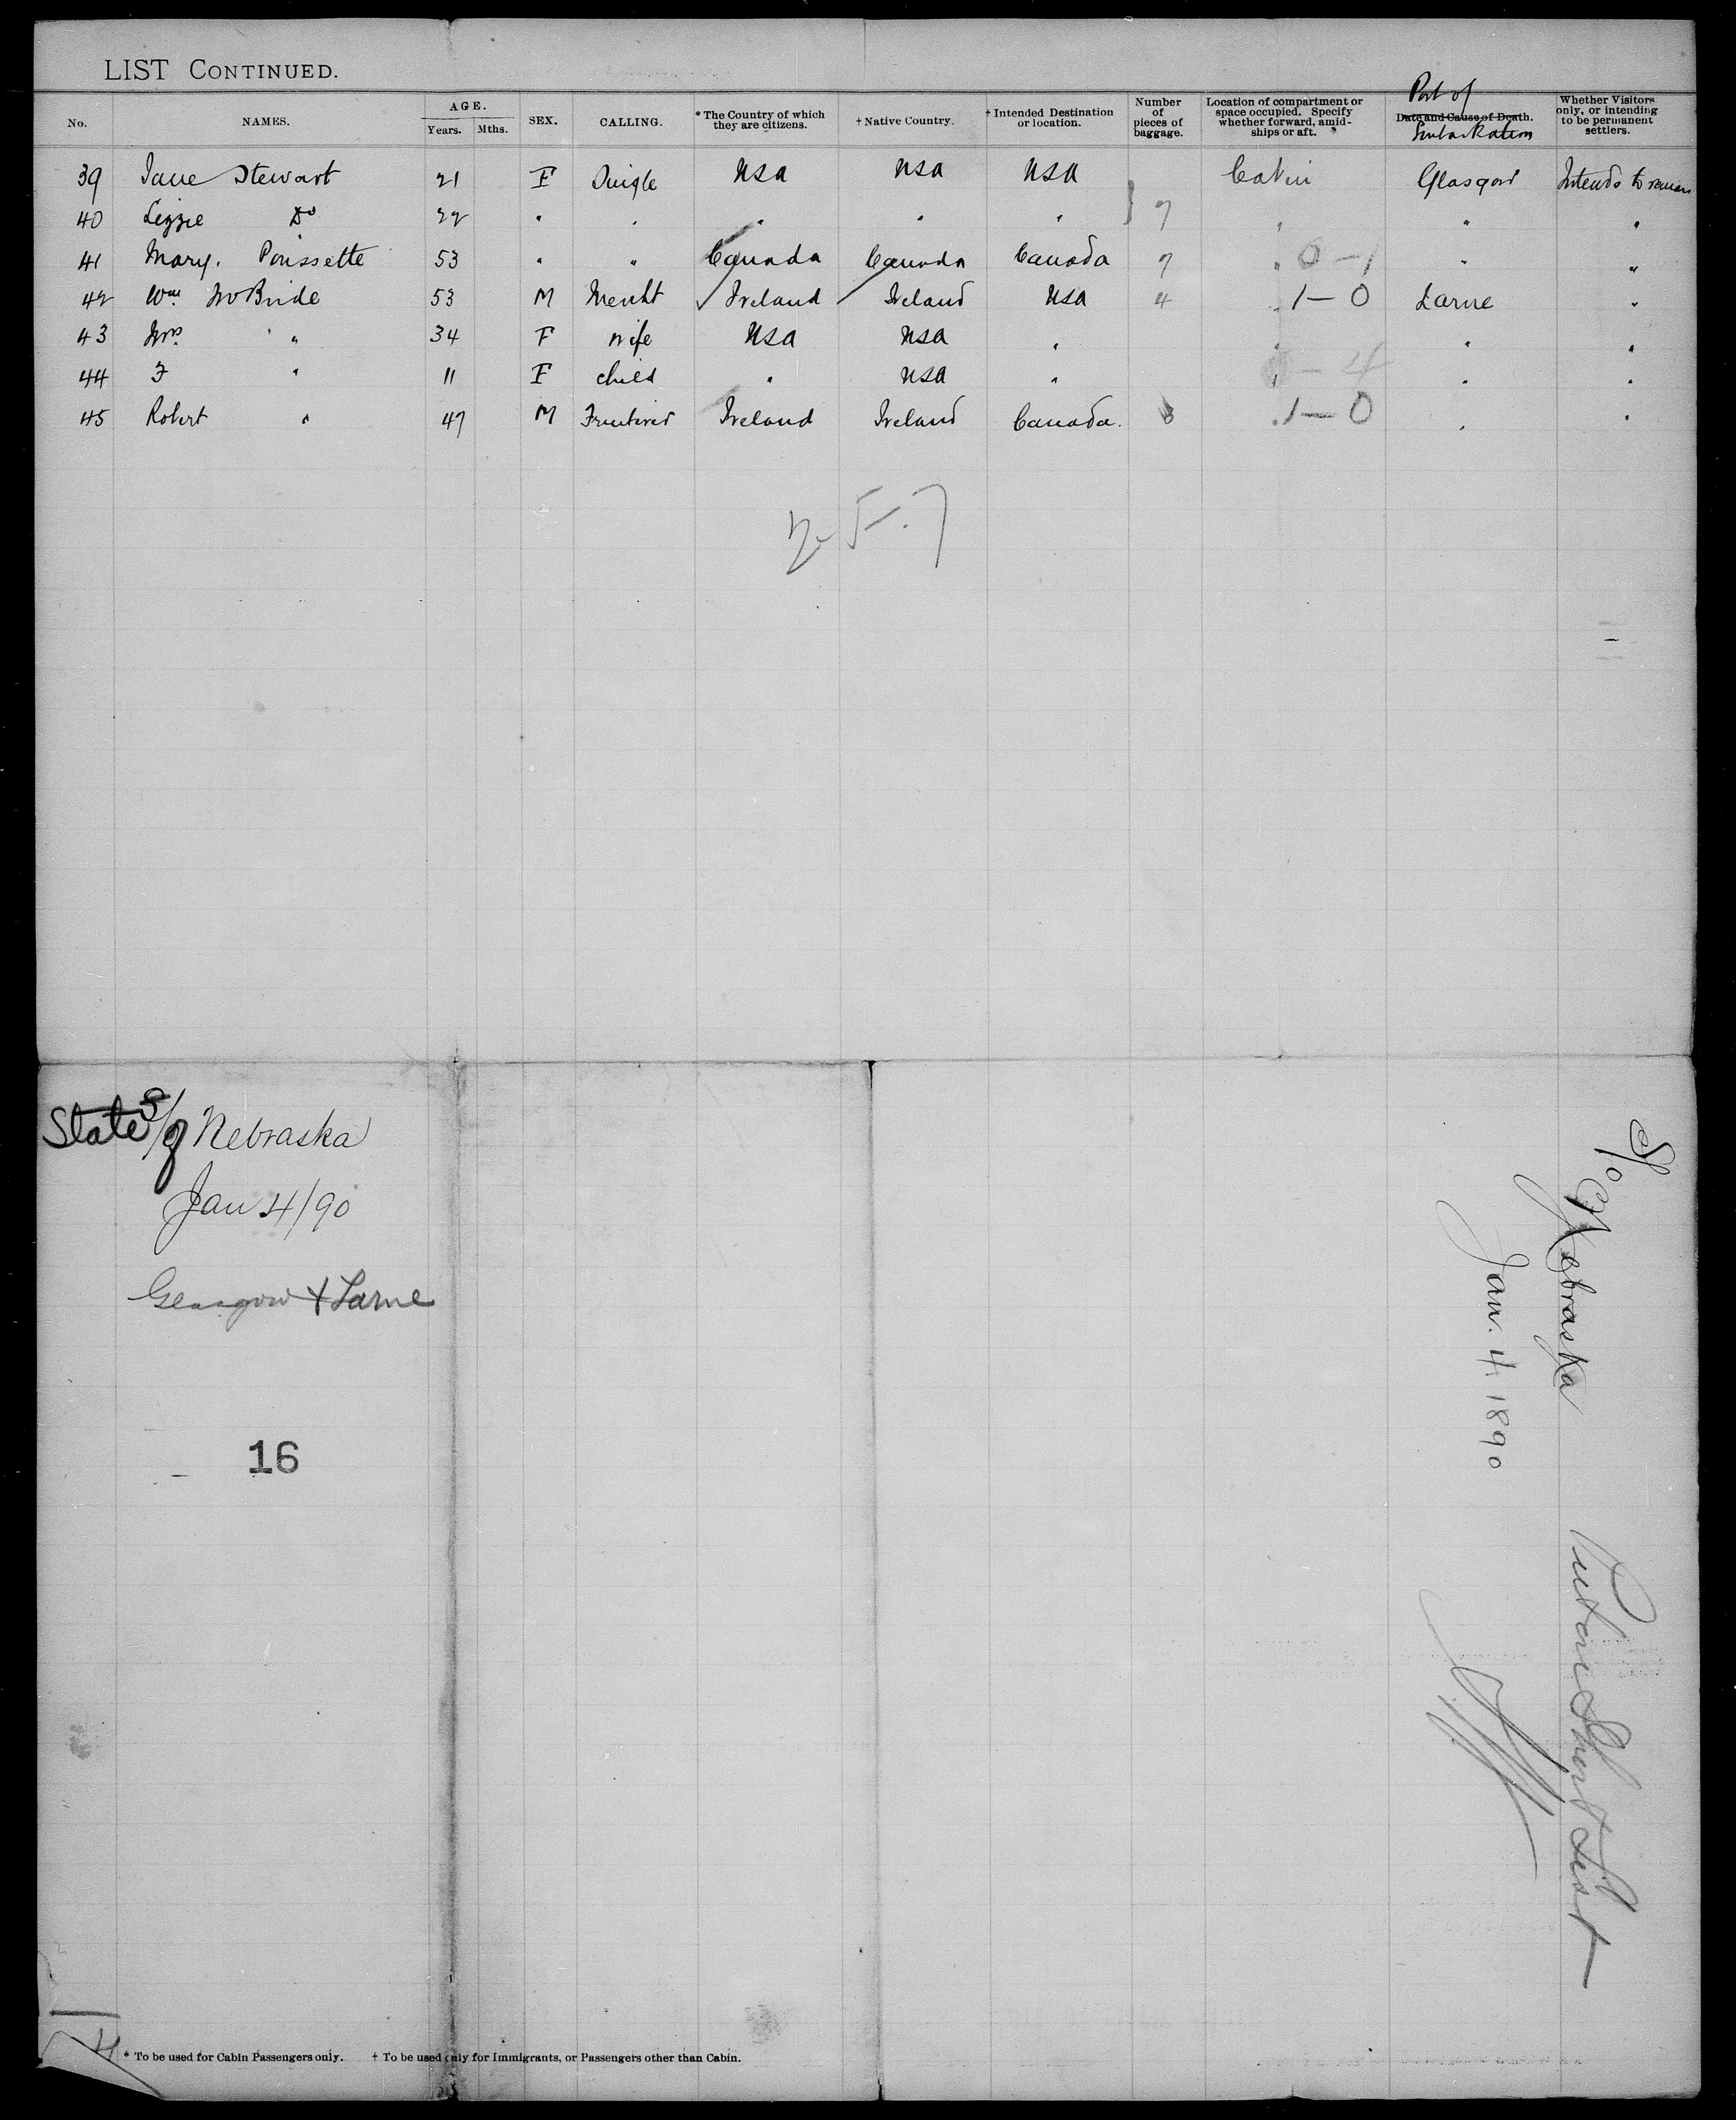 LIST CONTINUED.
No. NAMES. AGE. Years. Mths. SEX. CALLING. *The Country of which they are citizens. †Native Country. †Intended Destination or location. Number of pieces of baggage. Location of compartment or space occupied. Specify whether forward, amidships or aft. Date and Cause of Death. Port of Embarkation Whether Visitors only, or intending to be permanent settlers.
39 Jane Stewart 21 F Single USA USA USA Cabin Glasgow Intends to remain
40 Lizzie Do 22 " " " " " } 7 " " "
41 Mary. Poussette 53 " " Canada Canada Canada 7 " 0-1 " "
42 Wm McBride 53 M Mercht Ireland Ireland USA 4 " 1-0 Larne "
43 Mrs " 34 F wife USA USA " " " "
44 F " 11 F child " USA " " - 4 " "
45 Robert " 47 M Ireland Ireland Canada. 3 " 1-0 " "
2 5.7
State S/of Nebraska
Jan 4/90
Glasgow & Larne
16
S/o Nebraska
Jan. 4 1890
Short List
* To be used for Cabin Passengers only. † To be used only for Immigrants, or Passengers other than Cabin.